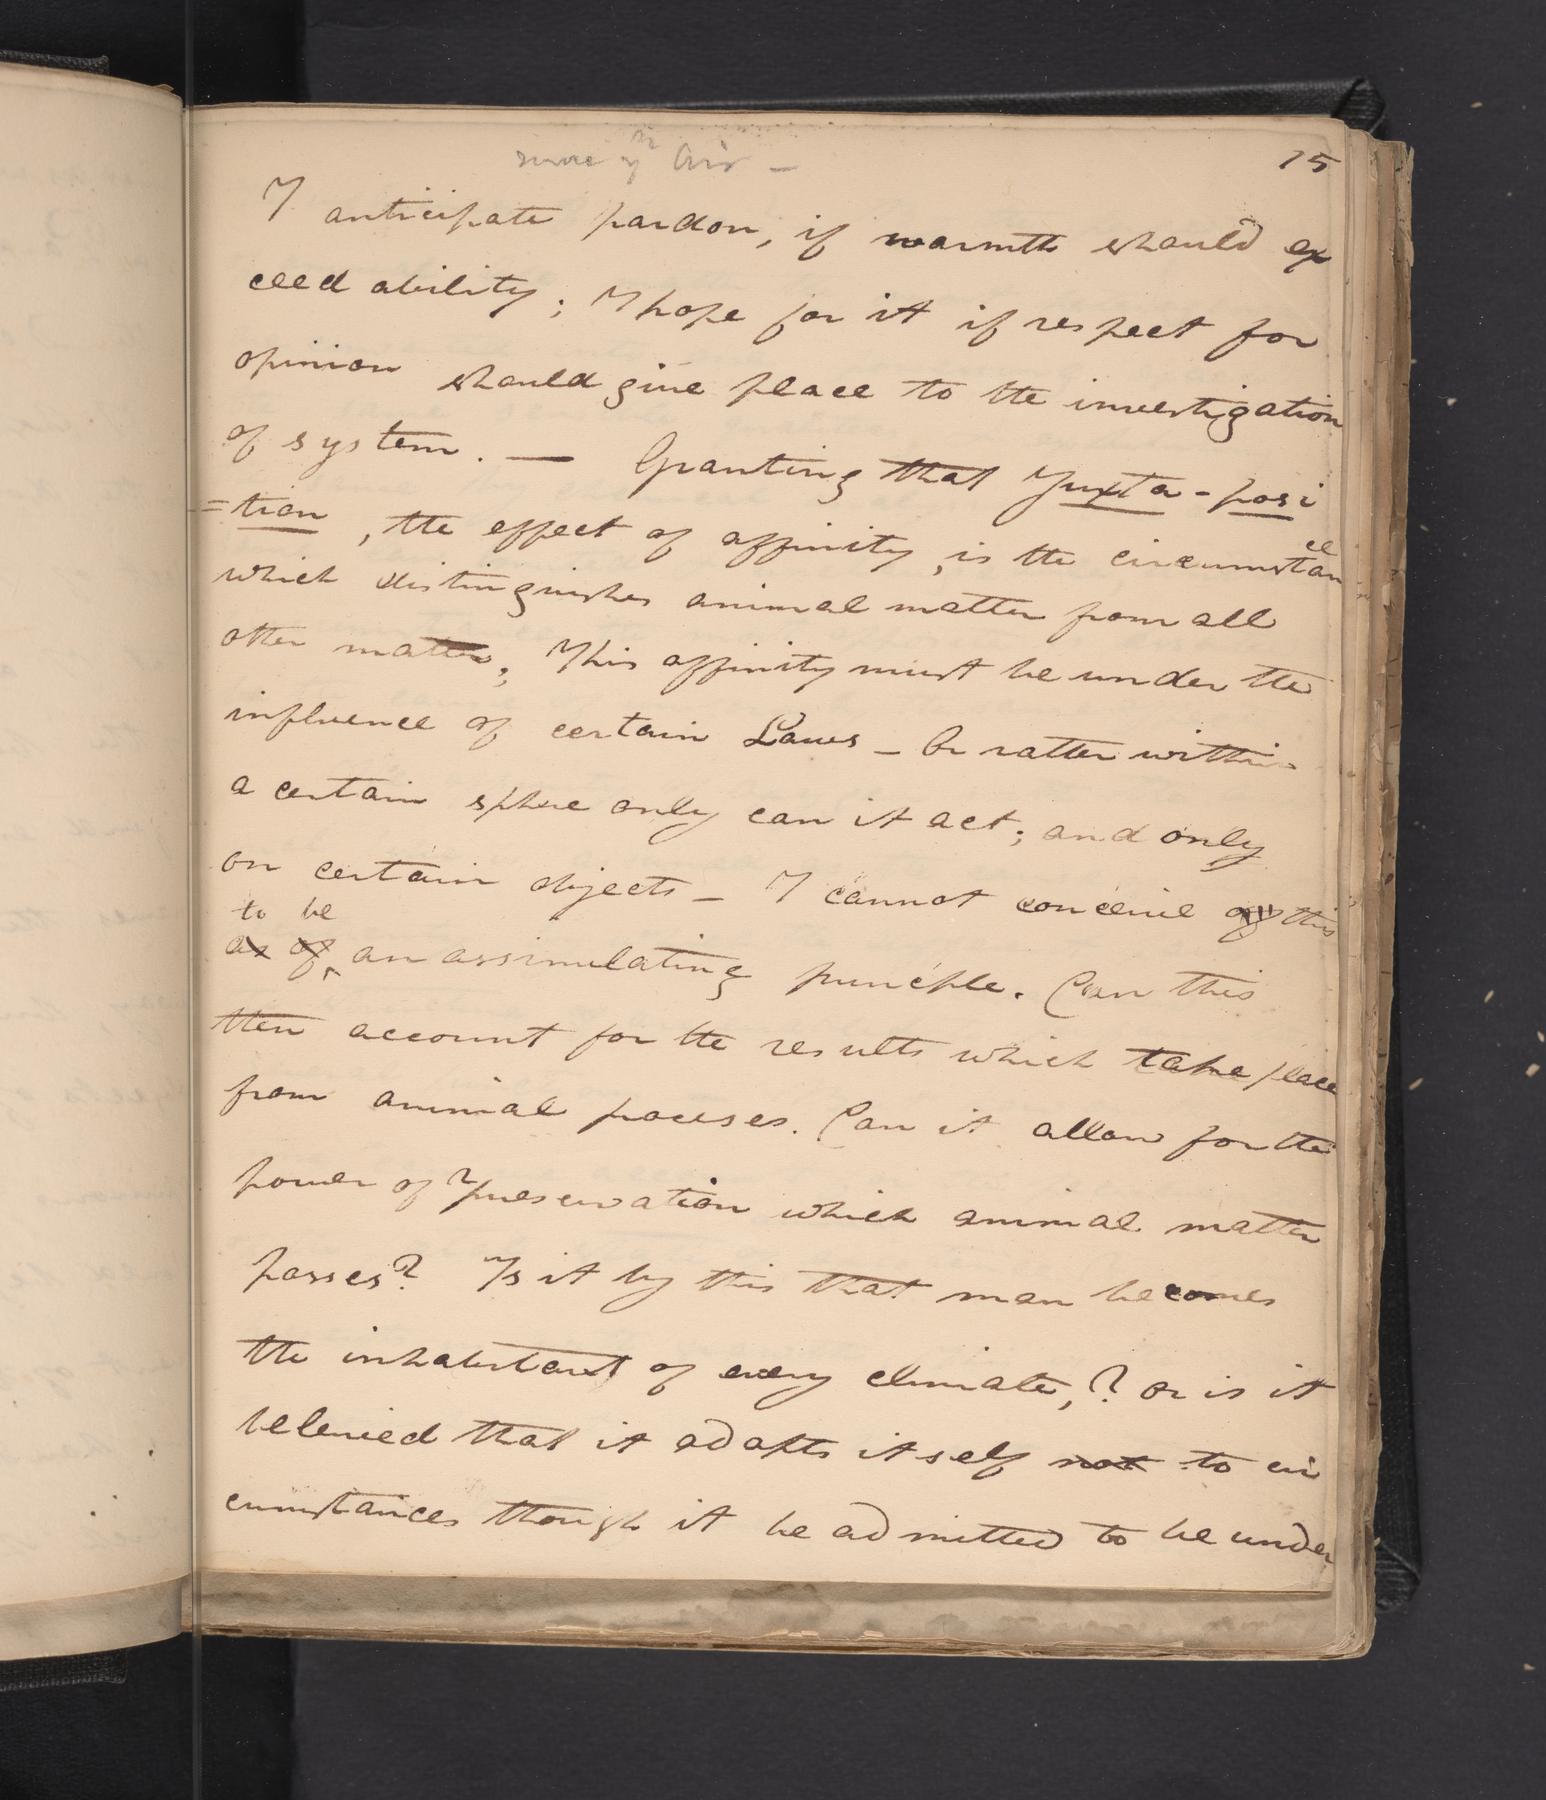 15
I anticipate pardon, if warmth should ex
ceed ability; I hope for it if respect for
opinion should give place to the investigation
of system. — Granting that Juxta-posi
=tion, the effect of affinity, is the circumstan
ce
which distinguishes animal matter from all
other matter; This affinity must be under the
influence of certain Laws – Or rather within
a certain sphere only can it act; and only
on certain objects – I cannot conceive of this
to be
as of an assimulating principle. Can this
then account for the results which take place
from animal processes. Can it allow for the
power of preservation which animal matter
posses? Is it by this that man becomes
the inhabitant of every climate,? or is it
beleived that it adapts itself not to cir
cumstances though it be admitted to be under